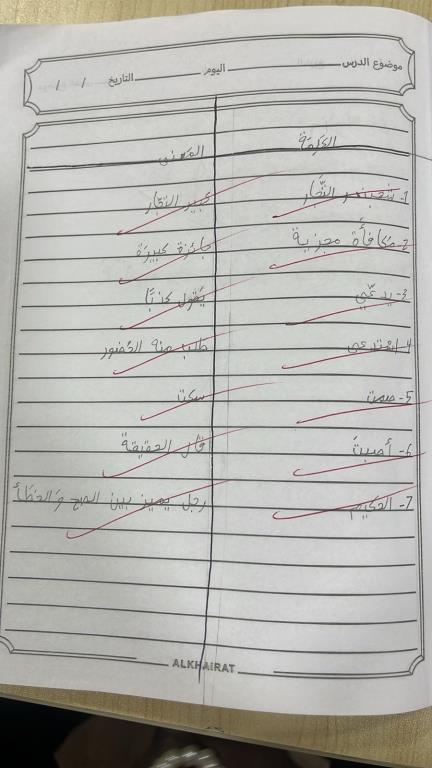 موضوع الدرس اليوم التاريخ / /
الكلمة المعنى
1- شهبندر التجّار كبير التجّار
2- مكافأة مجزية جائزة كبيرة
3- يدعّي يقول كذبًا
4- استدعى طلب منه الحضور
5- صمت سكت
6- أصبتَ قال الحقيقة
7- الحكيم رجل يميز بين الصح والخطأ
ALKHAIRAT